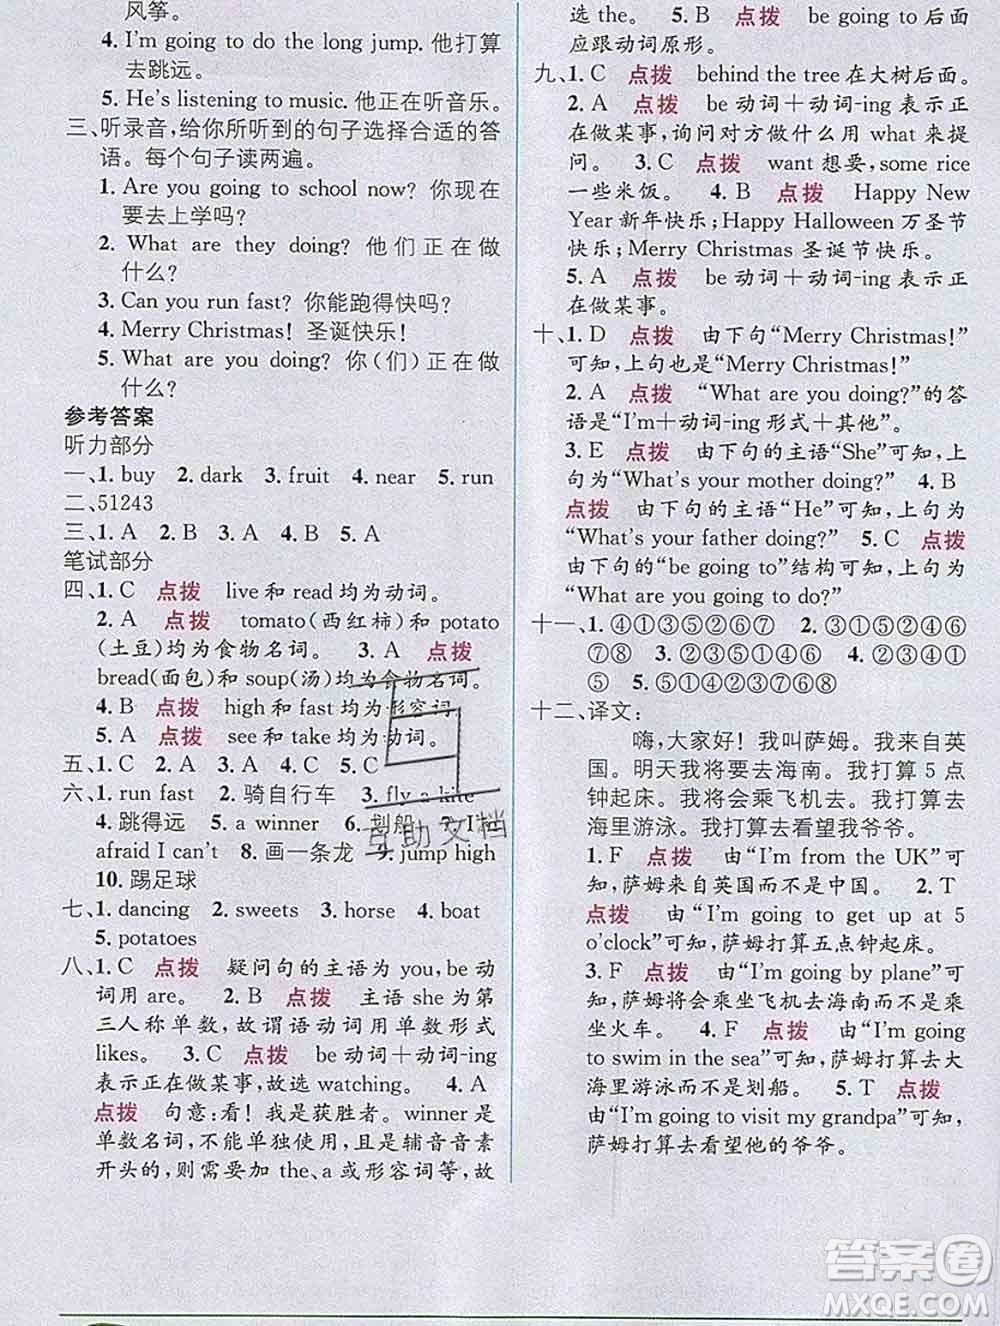 风筝。
4. I'm going to do the long jump. 他打算
去跳远。
5. He's listening to music. 他正在听音乐。
三、听录音,给你所听到的句子选择合适的答
语。每个句子读两遍。
1. Are you going to school now? 你现在
要去上学吗?
2. What are they doing? 他们正在做
什么?
3. Can you run fast? 你能跑得快吗?
4. Merry Christmas! 圣诞快乐!
5. What are you doing? 你(们)正在做
什么?
参考答案
听力部分
一、1. buy 2. dark 3. fruit 4. near 5. run
二、51243
三、1. A 2. B 3. B 4. A 5. A
笔试部分
四、1. C 点拨 live 和 read 均为动词。
2. A 点拨 tomato(西红柿)和 potato
(土豆)均为食物名词。 3. A 点拨
bread(面包)和 soup(汤)均为食物名词。
4. B 点拨 high 和 fast 均为形容词。
5. A 点拨 see 和 take 均为动词。
五、1. B 2. A 3. A 4. C 5. C
六、1. run fast 2. 骑自行车 3. fly a kite
4. 跳得远 5. a winner 6. 划船 7. I'm
afraid I can't 8. 画一条龙 9. jump high
10. 踢足球
七、1. dancing 2. sweets 3. horse 4. boat
5. potatoes
八、1. C 点拨 疑问句的主语为 you, be 动
词用 are。 2. B 点拨 主语 she 为第
三人称单数,故谓语动词用单数形式
likes. 3. C 点拨 be 动词+动词-ing
表示正在做某事,故选 watching. 4. A
点拨 句意:看!我是获胜者。winner 是
单数名词,不能单独使用,且是辅音音素
开头的,则需要加 the、a 或形容词等,故
选 the。 5. B 点拨 be going to 后面
应跟动词原形。
九、1. C 点拨 behind the tree 在大树后面。
2. A 点拨 be 动词+动词-ing 表示正
在做某事,询问对方做什么用 what 来提
问。 3. C 点拨 want 想要,some rice
一些米饭。 4. B 点拨 Happy New
Year 新年快乐;Happy Halloween 万圣节
快乐;Merry Christmas 圣诞节快乐。
5. A 点拨 be 动词+动词-ing 表示正
在做某事。
十、1. D 点拨 由下句“Merry Christmas!”
可知,上句也是“Merry Christmas!”
2. A 点拨 “What are you doing?”的答
语是“I'm+动词-ing 形式+其他”。
3. E 点拨 由下句的主语“She”可知,上
句为“What's your mother doing?” 4. B
点拨 由下句的主语“He”可知,上句为
“What's your father doing?” 5. C 点拨
由下句的“be going to”结构可知,上句为
“What are you going to do?”
十一、1. ④①③⑤②⑥⑦ 2. ③①⑤②④⑥
⑦⑧ 3. ⑥①⑤②④③ 4. ②③④①
⑤ 5. ④②①③⑤⑥⑦⑧
十二、译文:
嗨,大家好!我叫萨姆。我来自英
国。明天我将要去海南。我打算 5 点
钟起床。我将会乘飞机去。我打算去
海里游泳。我打算去看望我爷爷。
1. F 点拨 由“I'm from the UK”可
知,萨姆来自英国而不是中国。 2. T
点拨 由“I'm going to get up at 5
o'clock”可知,萨姆打算五点钟起床。
3. F 点拨 由“I'm going by plane”可
知,萨姆将会乘坐飞机去海南而不是乘
坐火车。 4. F 点拨 由“I'm going
to swim in the sea”可知,萨姆打算去大
海里游泳而不是划船。 5. T 点拨
由“I'm going to visit my grandpa”可知,
萨姆打算去看望他的爷爷。
互助文档
答案圈
MXQE.COM